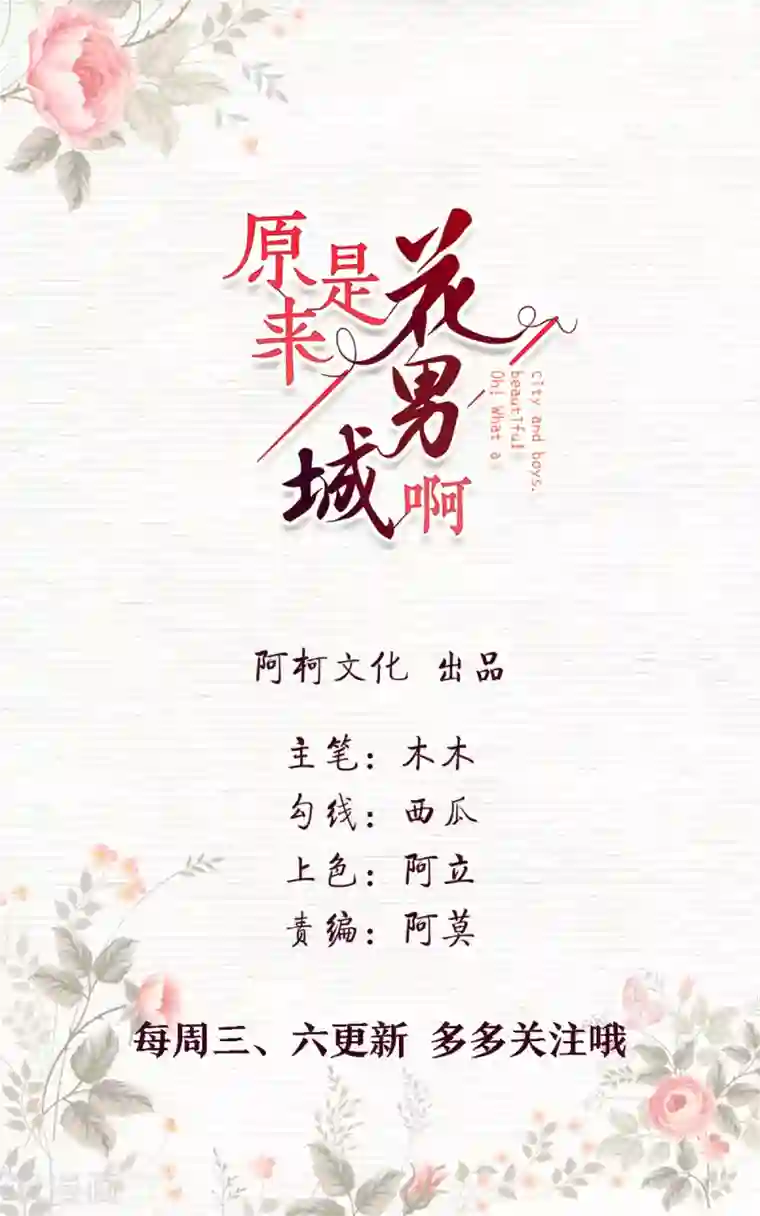 原来是花男城啊
Oh! What a
beautiful
city and boys.
阿柯文化 出品
主笔：木木
勾线：西瓜
上色：阿立
责编：阿莫
每周三、六更新 多多关注哦